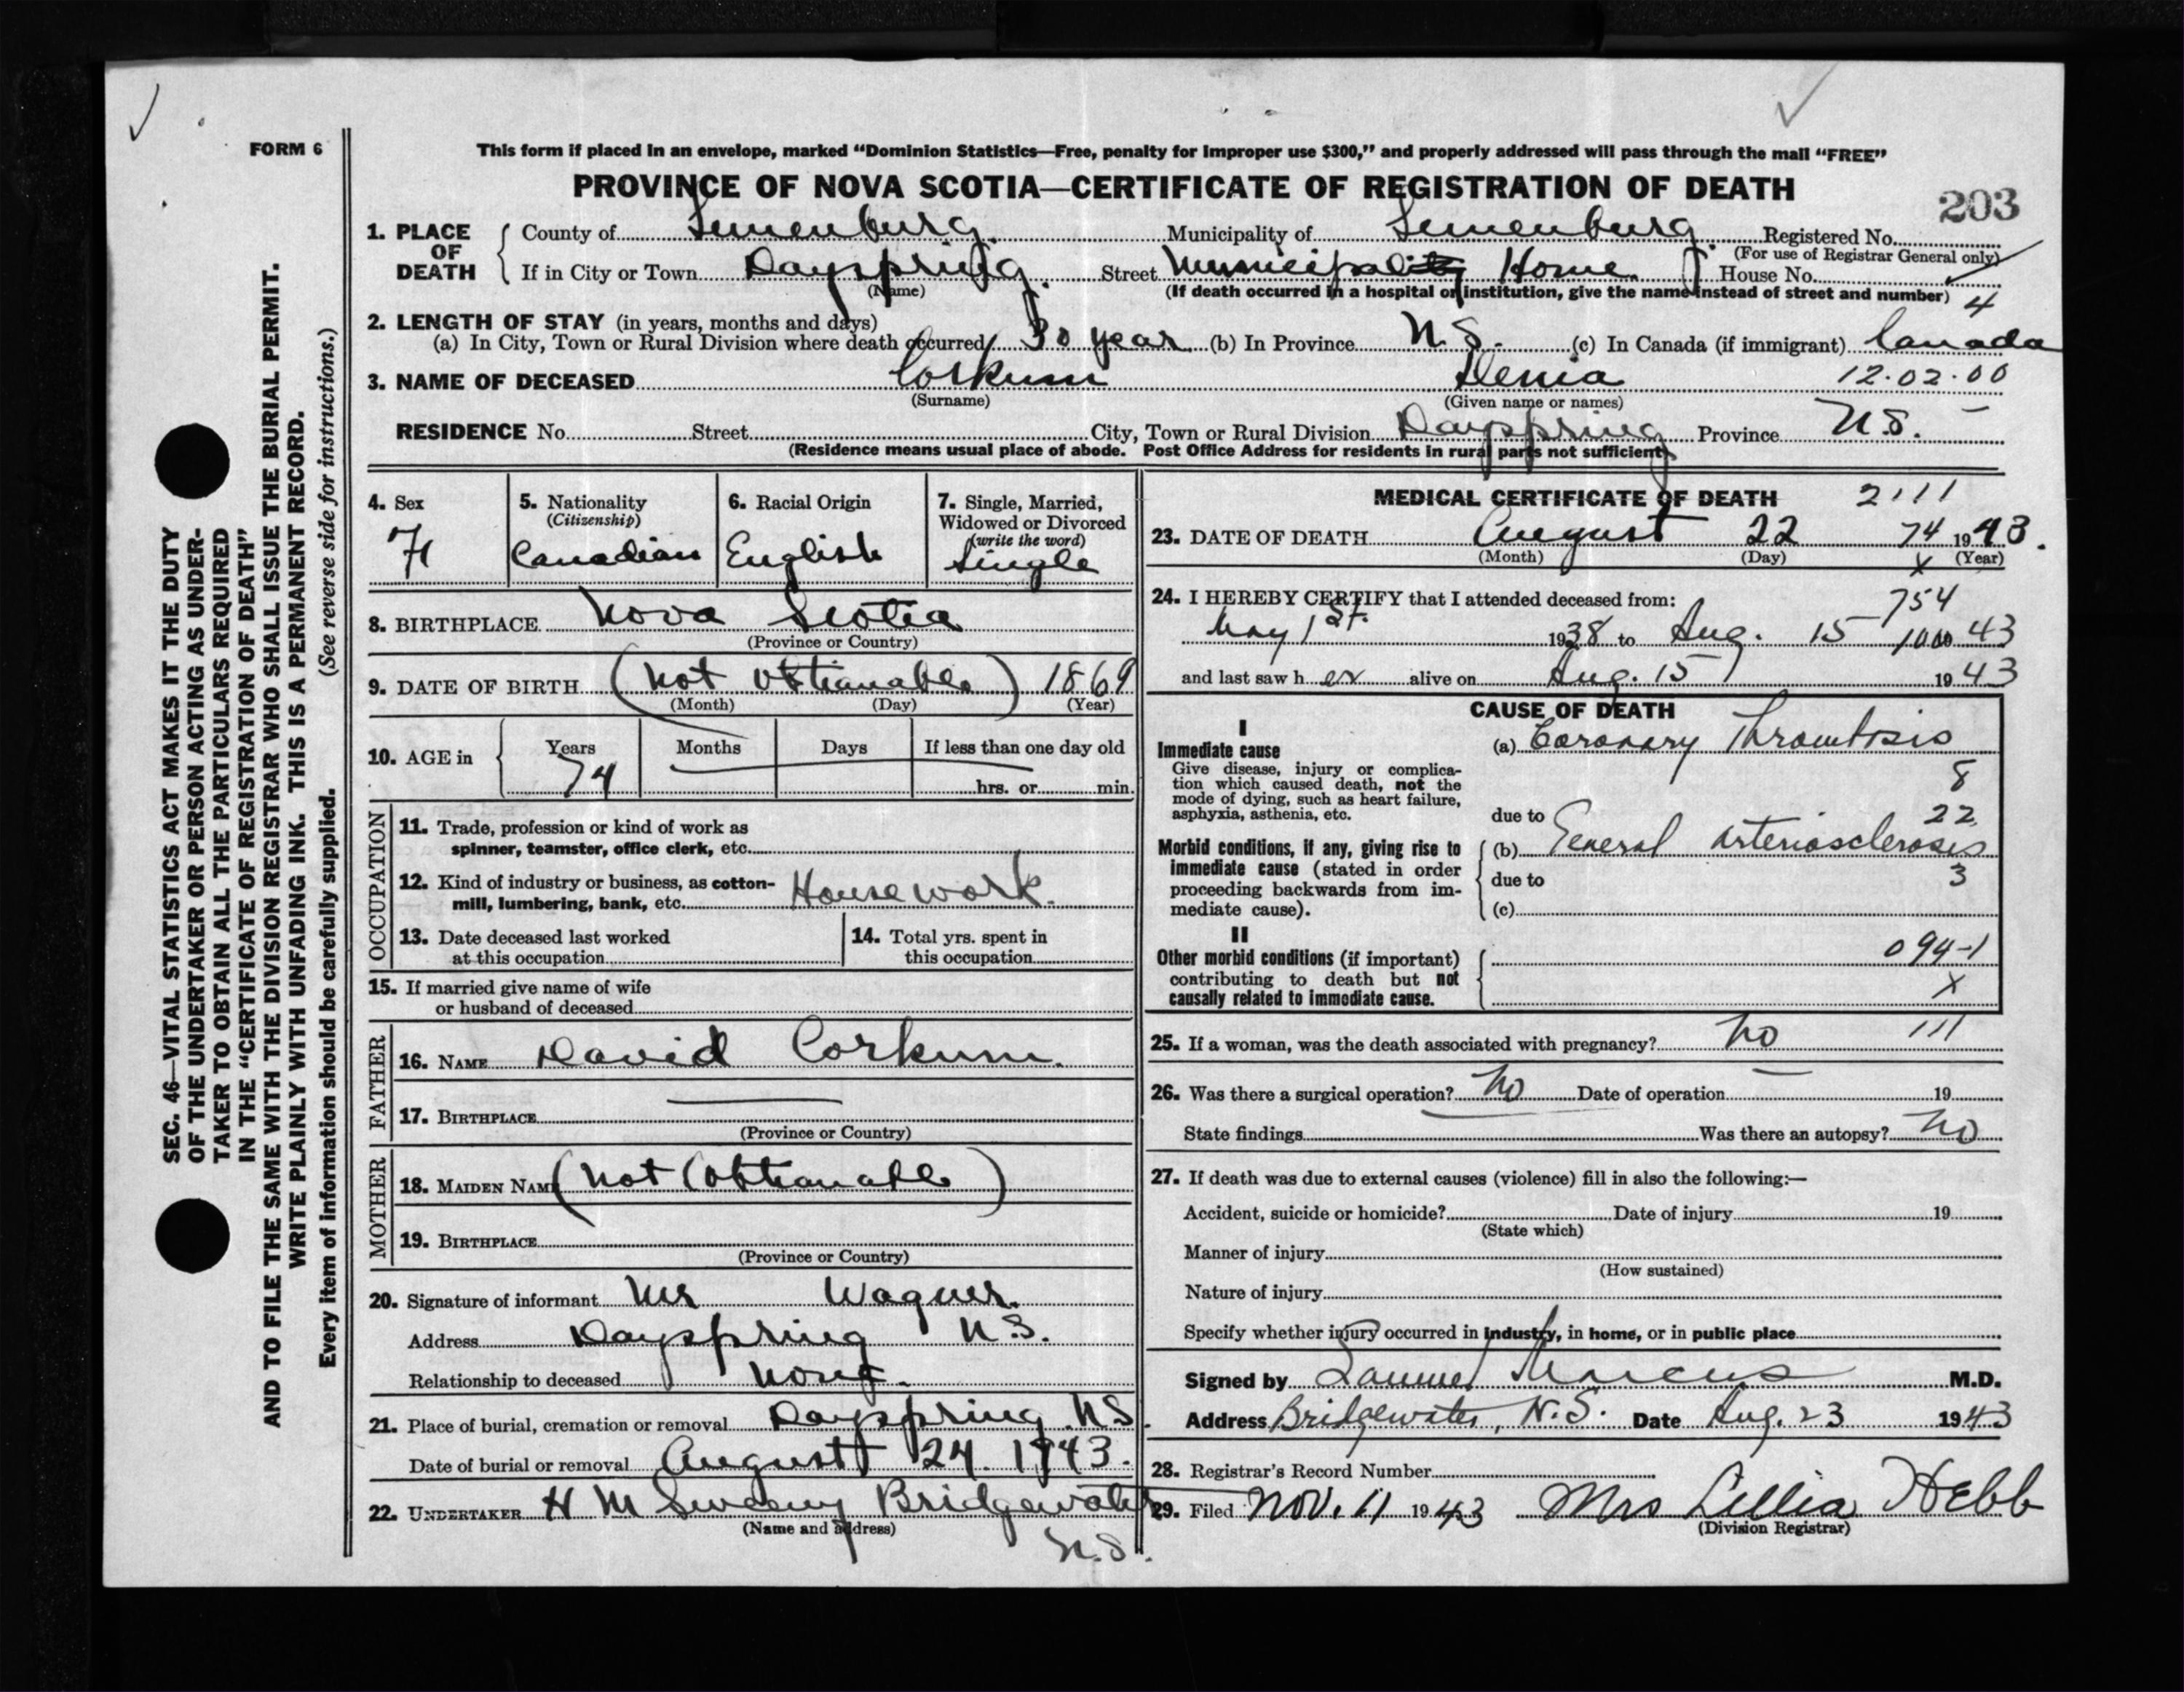 FORM 6
This form if placed in an envelope, marked “Dominion Statistics—Free, penalty for improper use $300,” and properly addressed will pass through the mail “FREE”
PROVINCE OF NOVA SCOTIA—CERTIFICATE OF REGISTRATION OF DEATH
203
1. PLACE OF DEATH County of Lunenburg Municipality of Lunenburg Registered No.
(For use of Registrar General only)
If in City or Town Dayspring Street Municipality Home House No.
(Name) (If death occurred in a hospital or institution, give the name instead of street and number) 4
2. LENGTH OF STAY (in years, months and days)
(a) In City, Town or Rural Division where death occurred 30 year (b) In Province N.S. (c) In Canada (if immigrant) Canada
3. NAME OF DECEASED Corkum 12.02.00
(Surname) (Given name or names)
RESIDENCE No. Street City, Town or Rural Division Dayspring Province N.S. –
(Residence means usual place of abode. Post Office Address for residents in rural parts not sufficient)
SEC. 46—VITAL STATISTICS ACT MAKES IT THE DUTY
OF THE UNDERTAKER OR PERSON ACTING AS UNDER-
TAKER TO OBTAIN ALL THE PARTICULARS REQUIRED
IN THE “CERTIFICATE OF REGISTRATION OF DEATH”
AND TO FILE THE SAME WITH THE DIVISION REGISTRAR WHO SHALL ISSUE THE BURIAL PERMIT.
WRITE PLAINLY WITH UNFADING INK. THIS IS A PERMANENT RECORD.
Every item of information should be carefully supplied. (See reverse side for instructions.)
4. Sex 5. Nationality 6. Racial Origin 7. Single, Married,
(Citizenship) Widowed or Divorced
(write the word)
F Canadian English Single
8. BIRTHPLACE Nova Scotia
(Province or Country)
9. DATE OF BIRTH (Not obtianable) 1869
(Month) (Day) (Year)
10. AGE in Years Months Days If less than one day old
74 hrs. or min.
OCCUPATION
11. Trade, profession or kind of work as
spinner, teamster, office clerk, etc.
12. Kind of industry or business, as cotton-
mill, lumbering, bank, etc. Housework.
13. Date deceased last worked
at this occupation
14. Total yrs. spent in
this occupation
15. If married give name of wife
or husband of deceased
FATHER
16. NAME David Corkum.
17. BIRTHPLACE
(Province or Country)
MOTHER
18. MAIDEN NAME (Not Obtianable)
19. BIRTHPLACE
(Province or Country)
20. Signature of informant Mr Wagner.
Address Dayspring N.S.
Relationship to deceased None.
21. Place of burial, cremation or removal Dayspring N.S.
Date of burial or removal August 24. 1943.
22. UNDERTAKER H M Sweeny Bridgewater
(Name and address)
N.S.
MEDICAL CERTIFICATE OF DEATH 2111
23. DATE OF DEATH August 22 74 1943.
(Month) (Day) X (Year)
24. I HEREBY CERTIFY that I attended deceased from: 754
May 1st. 1938 to Aug. 15 43
and last saw her alive on Aug. 15 1943
CAUSE OF DEATH
I
Immediate cause
Give disease, injury or complica-
tion which caused death, not the
mode of dying, such as heart failure,
asphyxia, asthenia, etc.
(a) Coronary Thrombosis
8
due to 22
Morbid conditions, if any, giving rise to
immediate cause (stated in order
proceeding backwards from im-
mediate cause).
(b) General arteriosclerosis
due to 3
(c)
II
Other morbid conditions (if important)
contributing to death but not
causally related to immediate cause.
094-1
X
25. If a woman, was the death associated with pregnancy? No 111
26. Was there a surgical operation? No Date of operation – 19
State findings Was there an autopsy? No
27. If death was due to external causes (violence) fill in also the following:—
Accident, suicide or homicide? Date of injury 19
(State which)
Manner of injury
(How sustained)
Nature of injury
Specify whether injury occurred in industry, in home, or in public place
Signed by Samuel Marcus M.D.
Address Bridgewater, N.S. Date Aug. 23 1943
28. Registrar's Record Number
29. Filed Nov. 11 1943 Mrs Lillia Hebb
(Division Registrar)